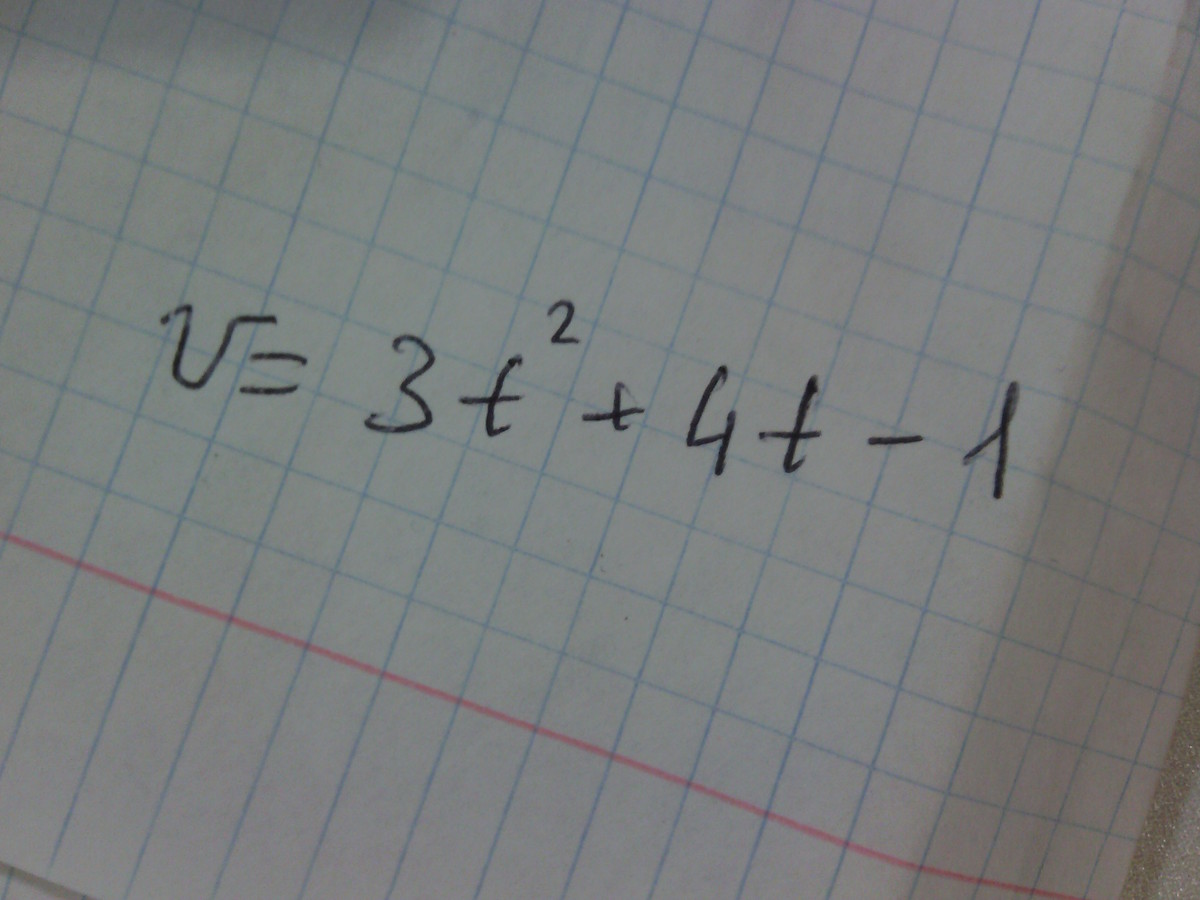 v = 3t² + 4t - 1